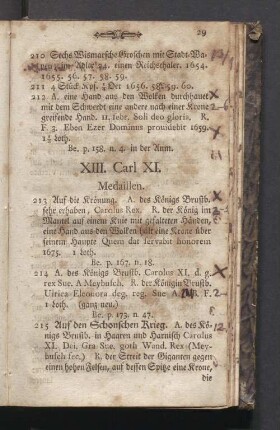 29
210 Sechs Wismarsche Groschen mit Stadt-Wa-
24. einen Reichsthaler. 1654.
1655. 56. 57. 58. 59.
211 4 Stück Kof. Oer 1656. 58. 59. 60.
212 A. eine Hand aus den Wolken durchhauet
mit dem Schwerdt eine andere nach einer Krone
greifende Hand. 11. febr. Soli deo gloria. R.
F. 3. Eben Ezer Dominus prouidebit 1659.
1½ Loth.
Be. p. 158. n. 4. in der Anm.
XIII. Carl XI.
Medaillen.
213 Auf die Krönung. A. des Königs Brustb.
sehr erhaben, Carolus Rex. R. der König im
Mantel auf einem Knie mit gefalteten Händen,
eine Hand aus den Wolken hält eine Krone über
seinem Haupte Quem dat servabit honorem
1675. 1 Loth.
Be. p. 167. n. 18.
214 A. des Königs Brustb. Carolus XI. d. g.
rex Sue. A Meybusch. R. der Königin Brustb.
Ulrica Eleonora deg. reg. Sue A. M R. F.
1 Loth. (ganz neu.)
Be. p. 173. n. 47.
215 Auf den Schonschen Krieg. A. des Kö-
nigs Brustb. in Haaren und Harnisch Carolus
XI. Dei. Gra Sue. goth Wand. Rex (Mey-
busch fec.) R. der Streit der Giganten gegen
einen hohen Felsen, auf dessen Spitze eine Krone,
die